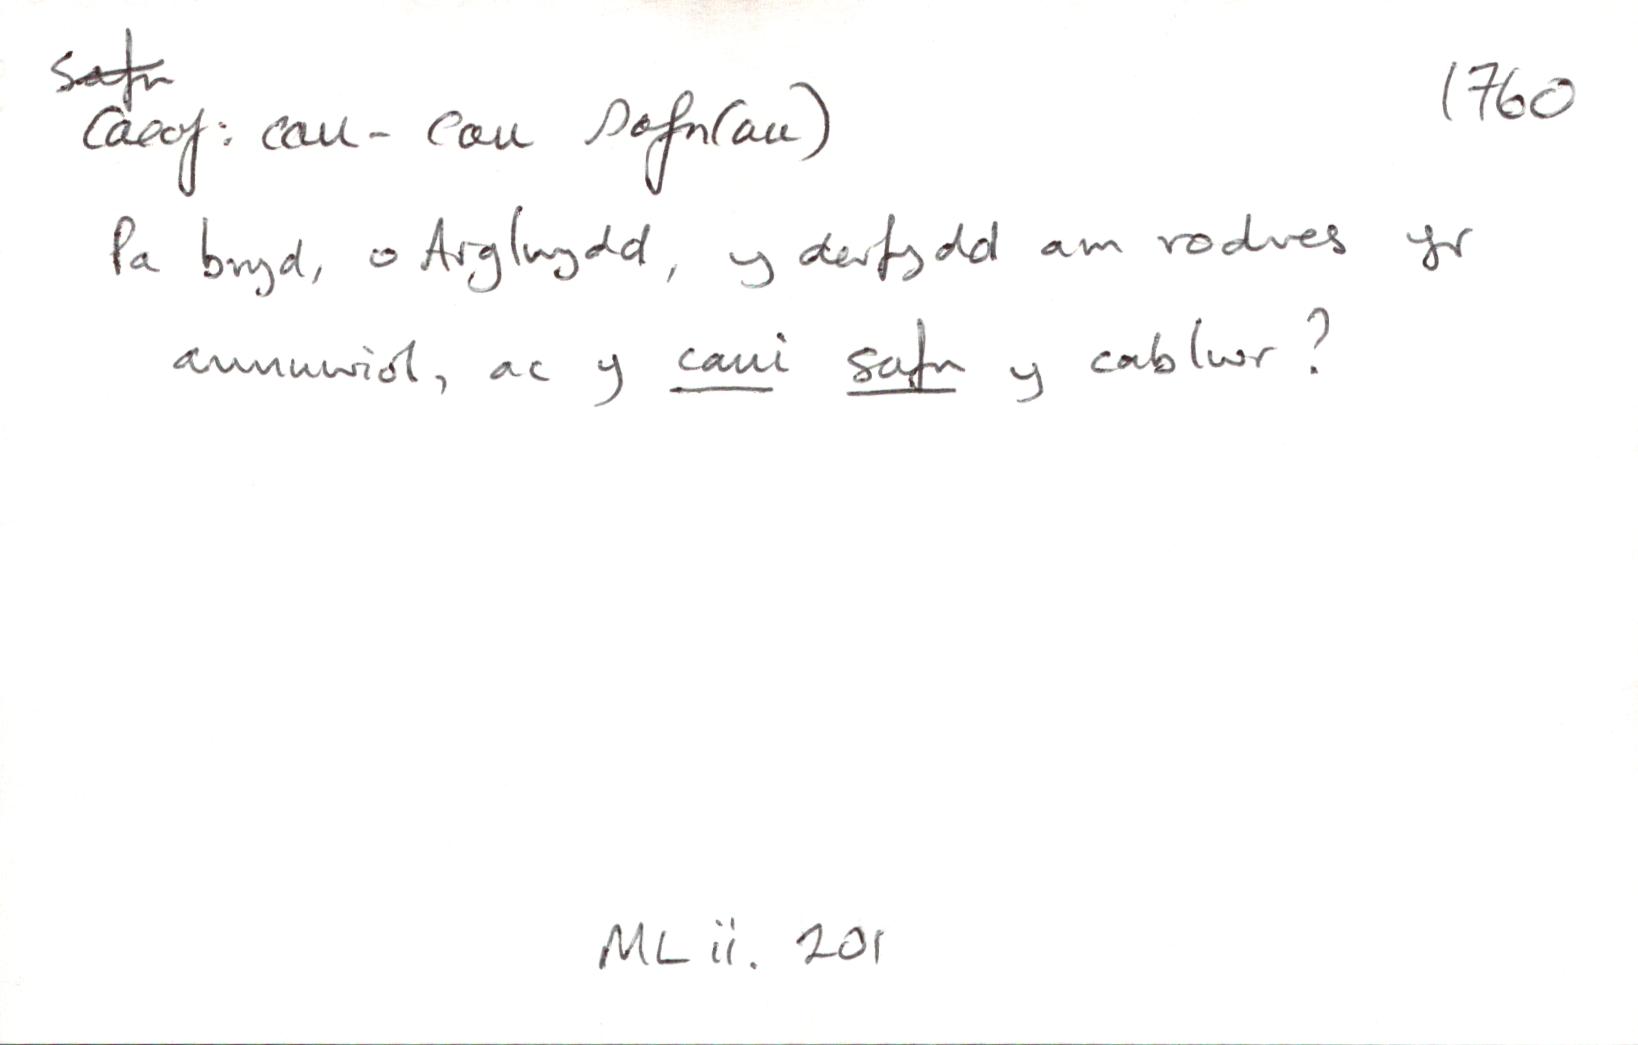 safn
1760
Caeaf: cau - cau safn(au)
Pa bryd, o Arglwydd, y derfydd am rodres yr
annuwiol, ac y caui safn y cablwr?
ML ii. 201